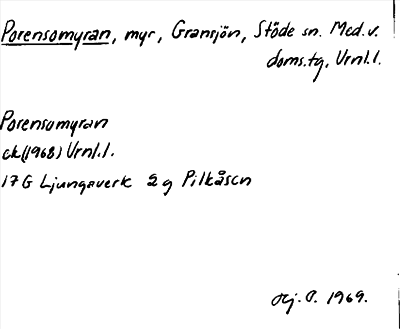 Porensomyran, myr, Gransjön, Stöde sn. Med. v.
doms.tg, Vrnl.l.
Porensomyran
ek (1968) Vrnl.l.
17G Ljungaverk 2g Pilkåsen
Hj. O. 1969.